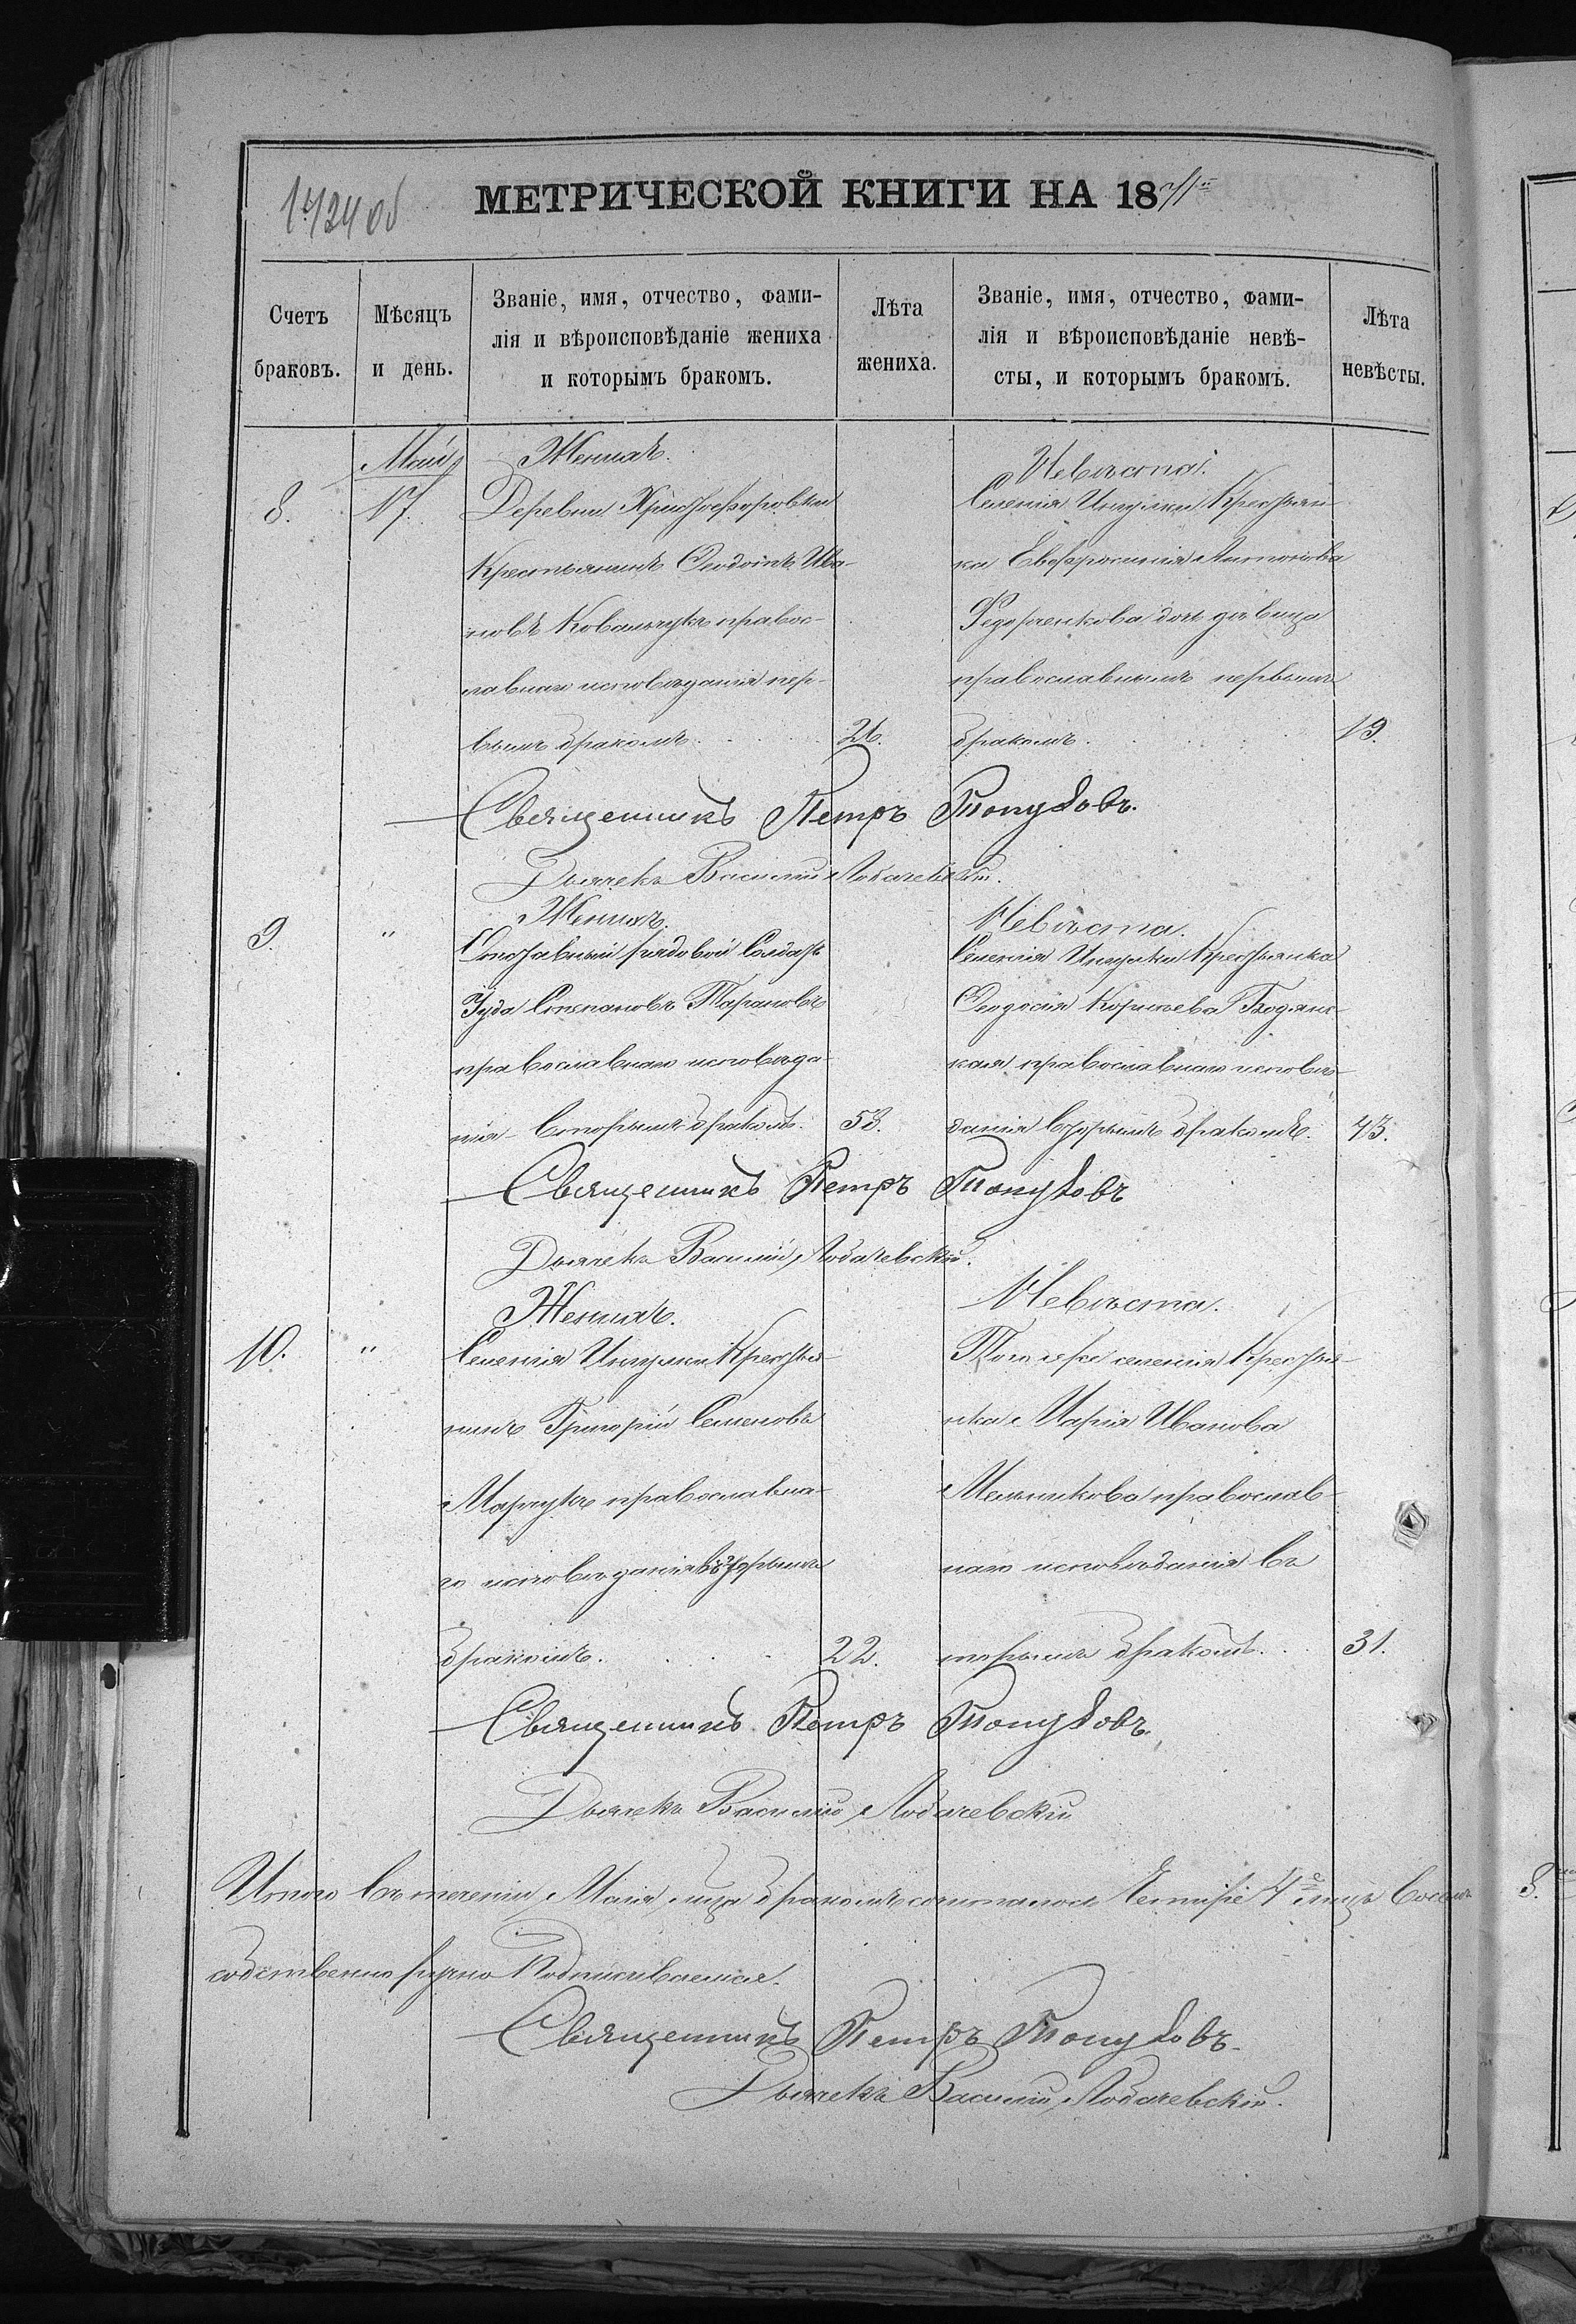 МЕТРИЧЕСКОЙ КНИГИ НА 18
Счетъ браковъ.
Мѣсяцъ и день.
Званіе, имя, отчество, фами-
лія и вѣроисповѣданіе жениха
и которымъ бракомъ.
Лѣта жениха.
Званіе, имя, отчество, фами-
лія и вѣроисповѣданіе невѣ-
сты, и которымъ бракомъ.
Лѣта невѣсты.
Май
8.
17.
Женихъ.
Деревни Христофоровки
Крестьянинъ Ѳеодоръ Ива-
новъ Ковальчукъ правос-
лавнаго исповѣданія пер-
вымъ бракомъ. 26.
Невѣста.
Селенія Ингулки Крестьян-
ка Евфросинія Антонова
Федорченкова дочь дѣвица
православнымъ первымъ
бракомъ. 19.
Священникъ Петръ
Дьячекъ Василій Лобачевскій.
9.
"
Женихъ.
Отставный рядовой Солдатъ
Іуда Степановъ Тарановъ
православнаго исповѣда-
нія вторымъ бракомъ. 53.
Невѣста.
Селенія Ингулки Крестьянка
Ѳеодосія Корнѣева Бодянс-
кая православнаго исповѣ-
данія вторымъ бракомъ. 43.
Священникъ Петръ
Дьячекъ Василій Лобачевскій.
10.
"
Женихъ.
Селенія Ингулки Крестья-
нинъ Григорій Семеновъ
Марчукъ православна-
го исповѣданія вторымъ
бракомъ. 22.
Невѣста.
Того же селенія Крестья-
нка Марія Иванова
Мельникова православ-
наго исповѣданія въ
торымъ бракомъ. 31.
Священникъ Петръ
Дьячекъ Василій Лобачевскій
Итого въ теченіи Маія бракомъ сочеталось Четыре 4 лицъ восемь
собственно ручно Подписываемся.
Священникъ Петръ
Дьячекъ Василій Лобачевскій.